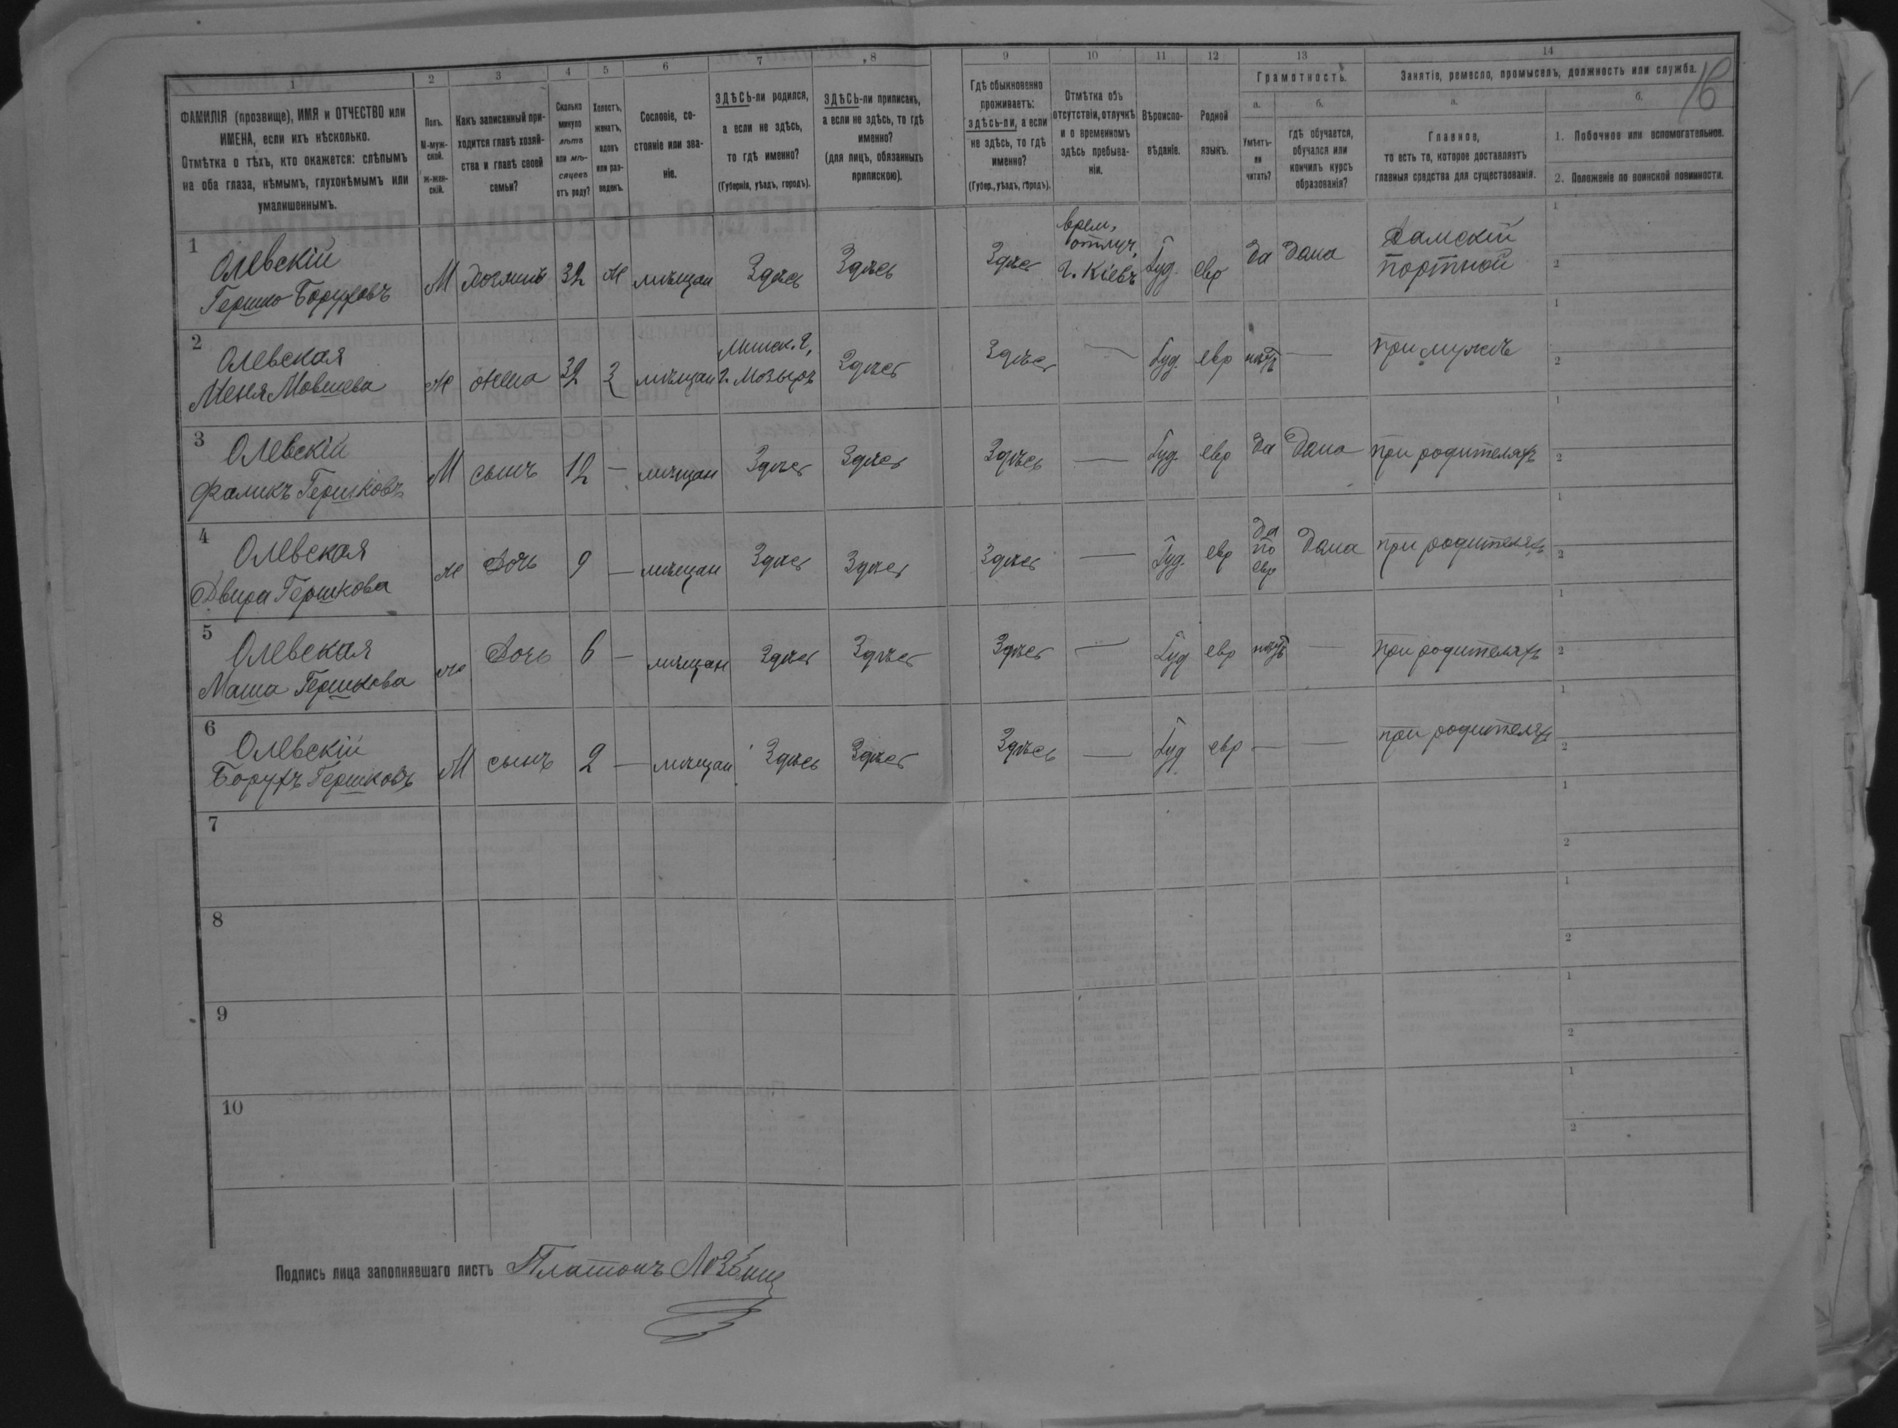 1 2 3 4 5 6 7 8 9 10 11 12 13 14
16
ФАМИЛІЯ (прозвище), ИМЯ и ОТЧЕСТВО или
ИМЕНА, если ихъ нѣсколько.
Отмѣтка о тѣхъ, кто окажется: слѣпымъ
на оба глаза, нѣмымъ, глухонѣмымъ или
умалишеннымъ.
Полъ.
М-муж-
ской.
Ж-жен-
скій.
Какъ записанный при-
ходится главѣ хозяй-
ства и главѣ своей
семьи?
Сколько
минуло
лѣтъ
или мѣ-
сяцевъ
отъ роду?
Холостъ,
женатъ,
вдовъ
или раз-
веденъ.
Сословіе, со-
стояніе или зва-
ніе.
ЗДѢСЬ-ли родился,
а если не здѣсь,
то гдѣ именно?
(Губернія, уѣздъ, городъ).
ЗДѢСЬ-ли приписанъ,
а если не здѣсь, то гдѣ
именно?
(для лицъ, обязанныхъ
припискою).
Гдѣ обыкновенно
проживаетъ:
здѣсь-ли, а если
не здѣсь, то гдѣ
именно?
(Губер., уѣздъ, городъ).
Отмѣтка объ
отсутствіи, отлучкѣ
и о временномъ
здѣсь пребыва-
ніи.
Вѣроиспо-
вѣданіе.
Родной
языкъ.
Грамотность.
а. б.
Умѣетъ-
ли
читать?
гдѣ обучается,
обучался или
кончилъ курсъ
образованія?
Занятіе, ремесло, промыселъ, должность или служба.
а. б.
Главное,
то есть то, которое доставляетъ
главныя средства для существованія.
1. Побочное или вспомогательное.
2. Положеніе по воинской повинности.
1 Олевскій
Гершко Боруховъ
М хозяинъ 32 ж мѣщан Здѣсь Здѣсь Здѣсь
врем.
отлуч,
г. Кіевъ
Іуд. евр да дома
Дамскій
портной
2 Олевская
Меня Мовшева
ж жена 32 З мѣщан
Минск. г,
г. Мозырь
Здѣсь Здѣсь — Іуд. евр нѣтъ — при мужѣ
3 Олевскій
Фаликъ Гершковъ
М сынъ 12 — мѣщан Здѣсь Здѣсь Здѣсь — Іуд. евр да дома при родителяхъ
4 Олевская
Двира Гершкова
ж дочь 9 — мѣщан Здѣсь Здѣсь Здѣсь — Іуд. евр
да
по
евр
дома при родителяхъ
5 Олевская
Маша Гершкова
ж дочь 6 — мѣщан Здѣсь Здѣсь Здѣсь — Іуд евр нѣтъ — при родителяхъ
6 Олевскій
Борухъ Гершковъ
М сынъ 2 — мѣщан Здѣсь Здѣсь Здѣсь — Іуд евр — — при родителяхъ
7
8
9
10
Подпись лица заполнявшаго листъ Платонъ